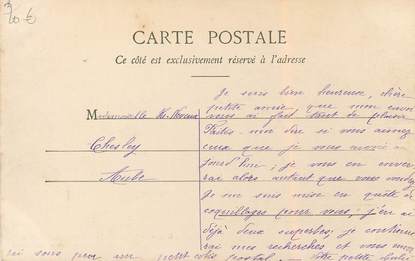 30 €
CARTE POSTALE
Ce côté est exclusivement réservé à l'adresse
Mademoiselle
Chesley
Aube
Je suis bien heureuse, chère
petite amie, que mon envoi
vous ai fait tant de plaisir
Faites-moi dire si vous aimez
ceux que je vous envoie
jourd'hui, je vous en enver
rai alors autant que vous voulez
Je me suis mise en quête de
coquillages pour vous, j'en ai
déjà deux superbes; je continue
rai mes recherches et vous
rai sous peu un petit colis postal — Votre petite